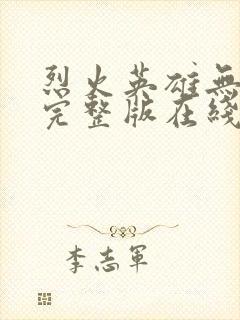 烈火英雄無
完整版在綫
李志軍